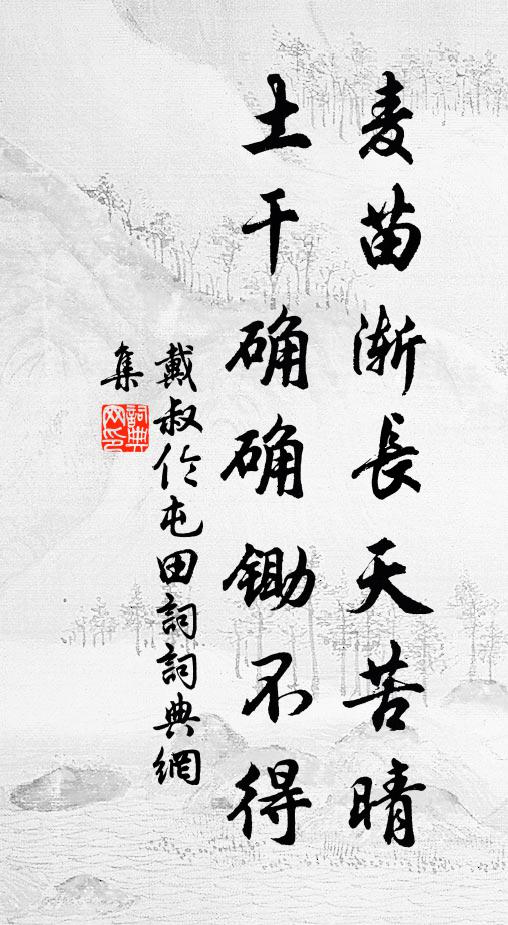 麦苗渐長天苦晴
土干确确锄不得
戴叔伦屯田詞詞典網
集
詞典网印